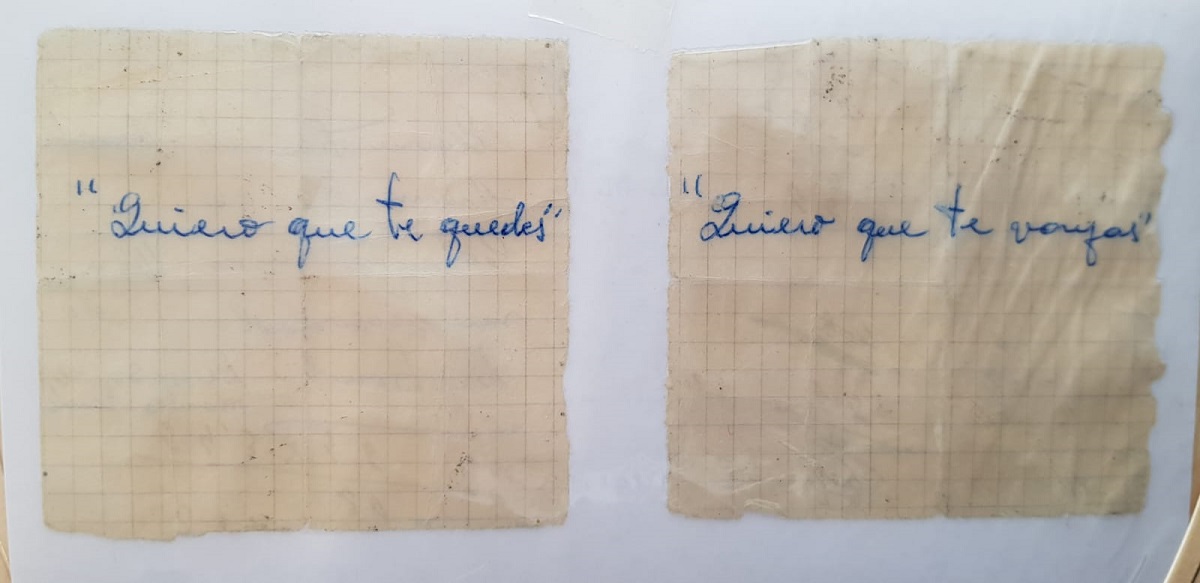 "Quiero que te quedes"
"Quiero que te vayas"